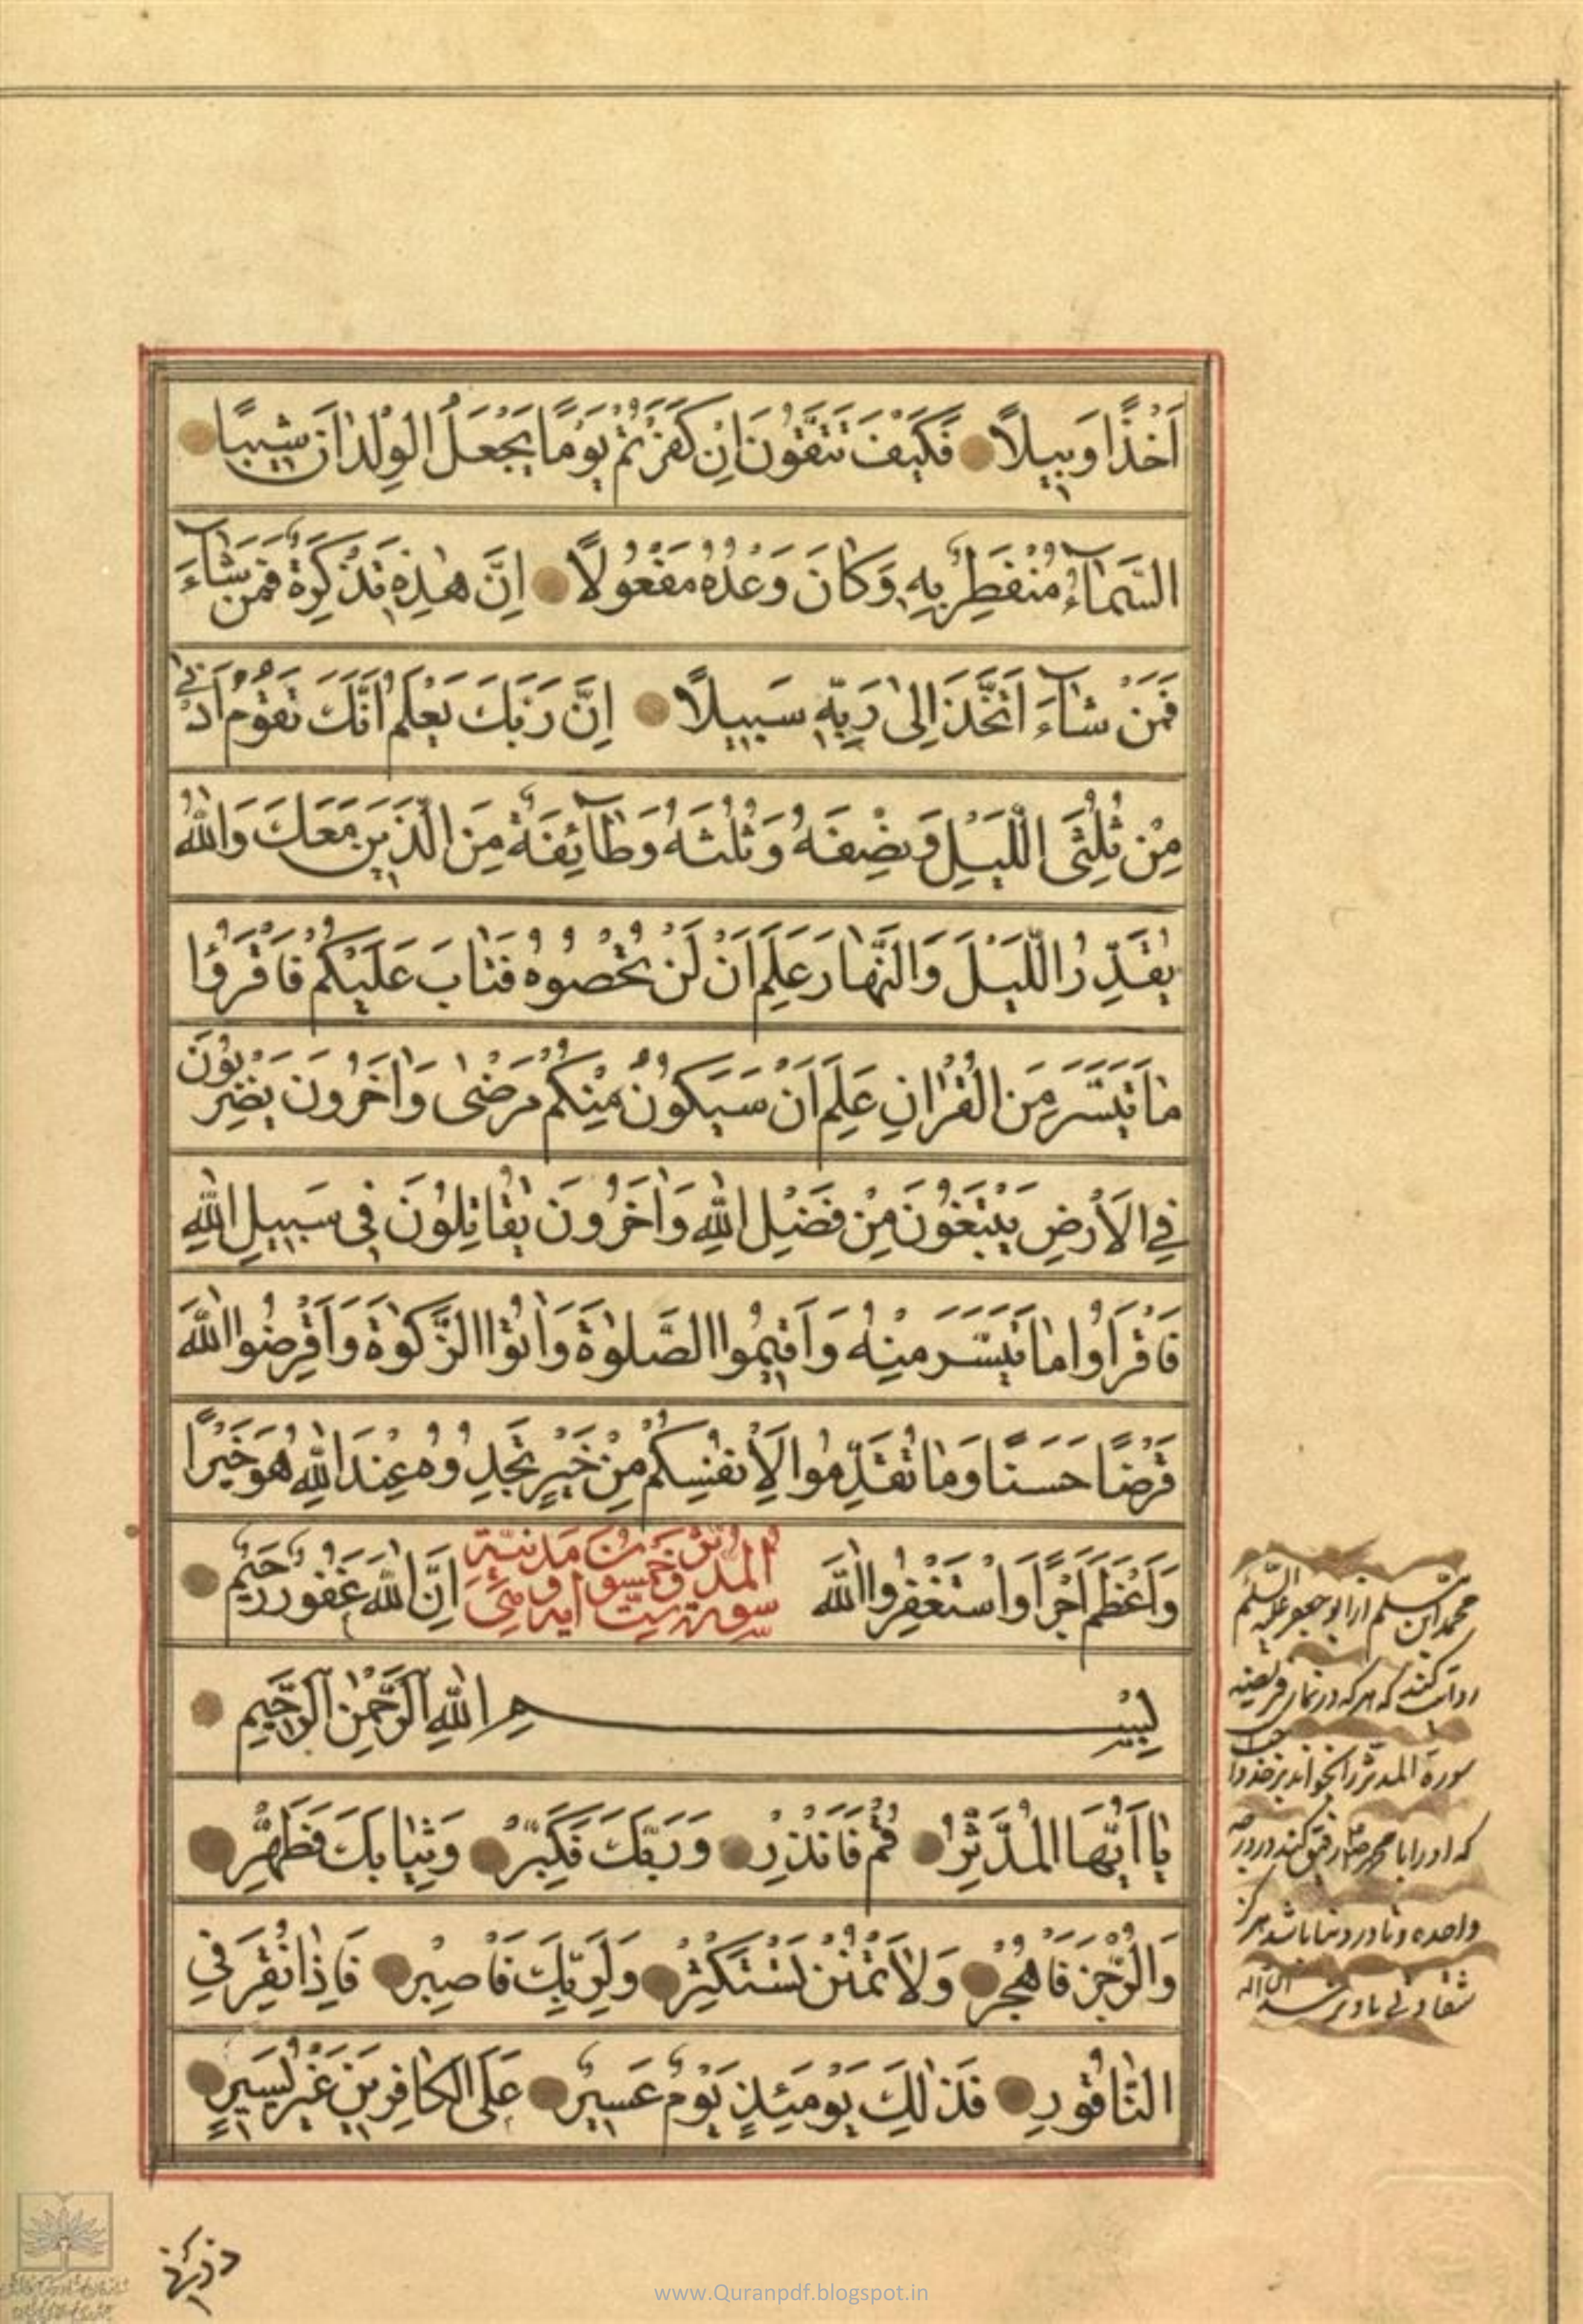 اَخْذًا وَبِيلًا فَكَيْفَ تَتَّقُونَ اِنْ كَفَرْتُمْ يَوْمًا يَجْعَلُ الْوِلْدٰانَ شِيبًا
السَّمٰآءُ مُنْفَطِرٌ بِهِ وَكٰانَ وَعْدُهُ مَفْعُولًا اِنَّ هٰذِهِ تَذْكِرَةٌ فَمَنْ شٰآءَ
فَمَنْ شٰآءَ اتَّخَذَ اِلىٰ رَبِّهِ سَبِيلًا اِنَّ رَبَّكَ يَعْلَمُ اَنَّكَ تَقُومُ اَدْنىٰ
مِنْ ثُلُثَىِ اللَّيْلِ وَنِصْفَهُ وَثُلُثَهُ وَطٰآئِفَةٌ مِنَ الَّذِينَ مَعَكَ وَاللّٰهُ
يُقَدِّرُ اللَّيْلَ وَالنَّهٰارَ عَلِمَ اَنْ لَنْ تُحْصُوهُ فَتٰابَ عَلَيْكُمْ فَاقْرَؤُا
مٰا تَيَسَّرَ مِنَ الْقُرْاٰنِ عَلِمَ اَنْ سَيَكُونُ مِنْكُمْ مَرْضىٰ وَاٰخَرُونَ يَضْرِبُونَ
فِي الْاَرْضِ يَبْتَغُونَ مِنْ فَضْلِ اللّٰهِ وَاٰخَرُونَ يُقٰاتِلُونَ فِي سَبِيلِ اللّٰهِ
فَاقْرَاُوا مٰا تَيَسَّرَ مِنْهُ وَاَقِيمُوا الصَّلوٰةَ وَاٰتُوا الزَّكوٰةَ وَاَقْرِضُوا اللّٰهَ
قَرْضًا حَسَنًا وَمٰا تُقَدِّمُوا لِاَنْفُسِكُمْ مِنْ خَيْرٍ تَجِدُوهُ عِنْدَ اللّٰهِ هُوَ خَيْرًا
وَاَعْظَمَ اَجْرًا وَاسْتَغْفِرُوا اللّٰهَ اِنَّ اللّٰهَ غَفُورٌ رَحِيمٌ
سورة المدثر ست وخمسون اية مدنية
بِسْمِ اللّٰهِ الرَّحْمٰنِ الرَّحِيمِ
يٰا اَيُّهَا الْمُدَّثِّرُ قُمْ فَاَنْذِرْ وَرَبَّكَ فَكَبِّرْ وَثِيٰابَكَ فَطَهِّرْ
وَالرُّجْزَ فَاهْجُرْ وَلٰا تَمْنُنْ تَسْتَكْثِرُ وَلِرَبِّكَ فَاصْبِرْ فَاِذٰا نُقِرَ فِي
النّٰاقُورِ فَذٰلِكَ يَوْمَئِذٍ يَوْمٌ عَسِيرٌ عَلَى الْكٰافِرِينَ غَيْرُ يَسِيرٍ
محمد ابن مسلم از ابو جعفر عليه السلم
روايت كند كه هر كه در نماز فريضه
سورة المدثر را بخواند بر خدا واجب
كه او را با محمد رفيق كند در درجه
واحده و تا در دنيا باشد هرگز
شقاوتى باو نرسد
ذرنى
www.Quranpdf.blogspot.in